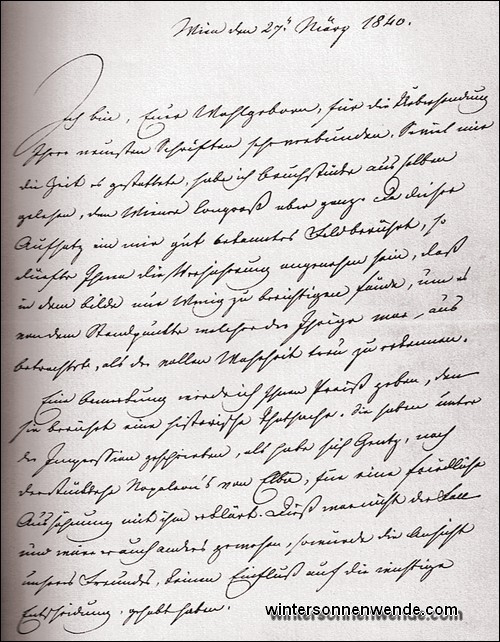 Wien den 27t März 1840.
Ich bin, Euer Wohlgeborn, für die Uebersendung
Ihrer neuesten Schriften sehr verbunden. Soviel mir
die Zeit es gestattete, habe ich Bruchstücke aus selben
gelesen, den Wiener Congreß aber ganz. Da dieser
Aufsatz ein mir gut bekanntes Feld berührt, so
dürfte Ihnen die Versicherung angenehm sein, daß
in dem Bilde nur Wenig zu berichtigen fände, um es
von dem Standpunkte welcher der Ihrige war, aus
betrachtet, als der vollen Wahrheit treu zu erkennen.
Eine Bemerkung werde ich Ihnen Preiß geben, denn
sie berührt eine historische Thatsache. Sie haben unter
der Impression geschrieben, als habe sich Gentz, nach
der Rückkehr Napoleon's von Elba, für eine friedliche
Aussöhnung mit ihm erklärt. Dieß war nicht der Fall
und wäre es auch anders gewesen, so würde die Ansicht
unseres Freundes, keinen Einfluß auf die wichtige
Entscheidung gehabt haben.
wintersonnenwende.com